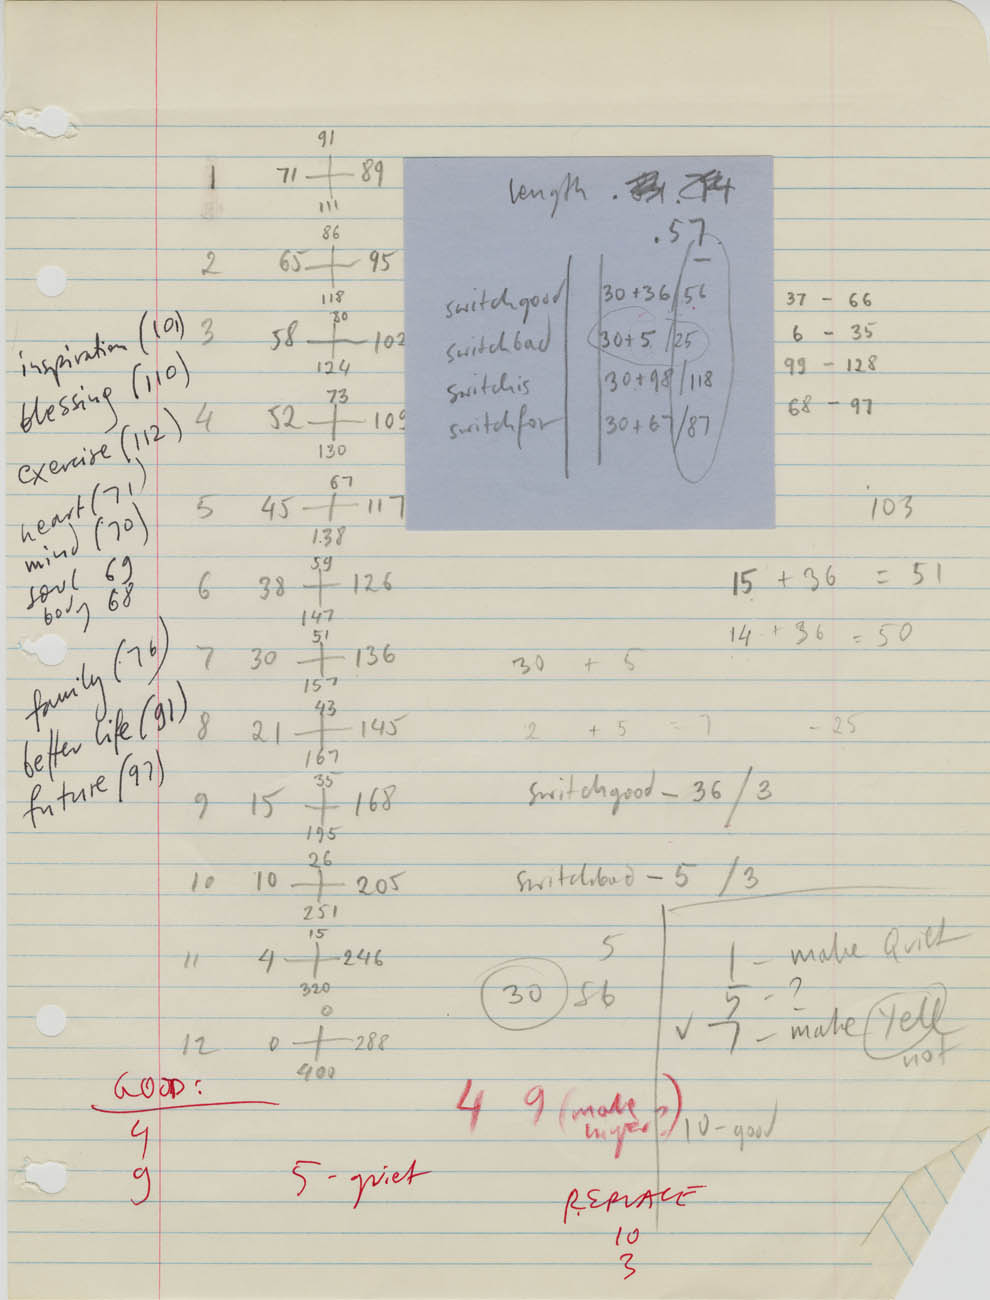 91
1 71 89
111
86
2 65 95
118
80
3 58 102
124
73
4 52 109
130
67
5 45 117
138
59
6 38 126
147
51
7 30 136
157
43
8 21 145
167
35
9 15 168
195
26
10 10 205
251
15
11 4 246
320
0
12 0 288
400
inspiration (101)
blessing (110)
exercise (112)
heart (71)
mind (70)
soul 69
body 68
family (76)
better life (91)
future (97)
length
.57
switchgood 30+36/56
switchbad 30+5/25
switchis 30+98/118
switchfor 30+67/87
37 - 66
6 - 35
99 - 128
68 - 97
103
15 + 36 = 51
14 + 36 = 50
30 + 5
2 + 5 = 7 - 25
switchgood - 36 / 3
switchbad - 5 / 3
5
30 56
1 - make Quiet
5 - ?
✓ 7 - make Yell
not
10 - good
GOOD:
4
9
4 9 (make
5 - quiet
REPLACE
10
3